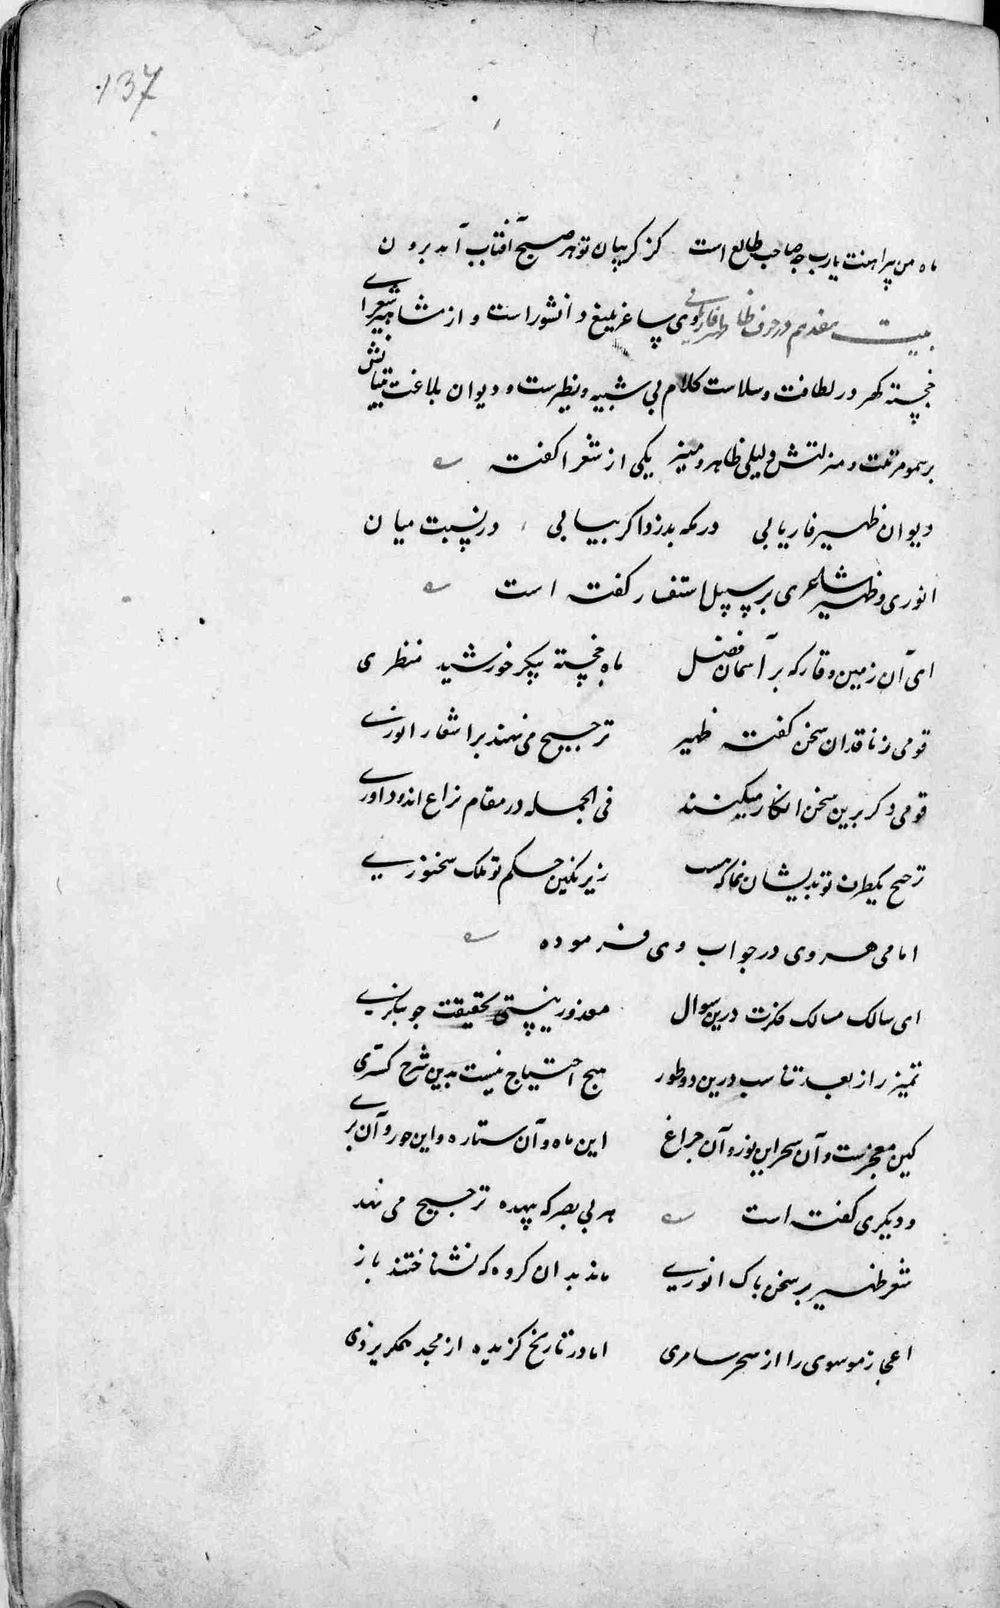 137
ماه من پیراهنت یارب چه صاحب طالع است کز کریبان تو هر صبح آفتاب آمد برون
بیت مقدم در حرف ظا ظهیر فاریابی وی شاعر بلیغ دانشور است و از مشاهیر شعرای
خجسته کهر در لطافت و سلاست کلام بی شبیه و نظیرست و دیوان بلاغت بنیانش
بر سمو مرتبت و منزلتش دلیلی ظاهر و منیر یکی از شعرا کفته
دیوان ظهیر فاریابی در مکه بدزد اکر بیابی در نسبت میان
انوری و ظهیر شاعری بر سبیل استفسار کفته است
ای آن زمین وقار که بر آسمان فضل ماه خجسته پیکر خورشید منظری
قومی ز ناقدان سخن کفته ظهیر ترجیح می نهند بر اشعار انوری
قومی دکر برین سخن انکار میکنند فی الجمله در مقام نزاع اند و داوری
ترجیح یکطرف تو بدیشان نما که هست زیر نکین حکم تو ملک سخنوری
امامی هروی در جواب وی فرموده
ای سالک مسالک فکرت درین سوال معذور نیستی بحقیقت چو بنکری
تمیز را ز بعد تناسب درین دو طور هیچ احتیاج نیست بدین شرح کستری
کین معجزست و آن سحر این نور و آن چراغ این ماه و آن ستاره و این حور و آن پری
و دیکری کفته است هر بی بصر که بیهده ترجیح می نهد
شعر ظهیر بر سخن پاک انوری ماند بدان کروه که نشناختند باز
اعجاز موسوی را از سحر سامری اما در تاریخ کزیده از مجد همکر یزدی